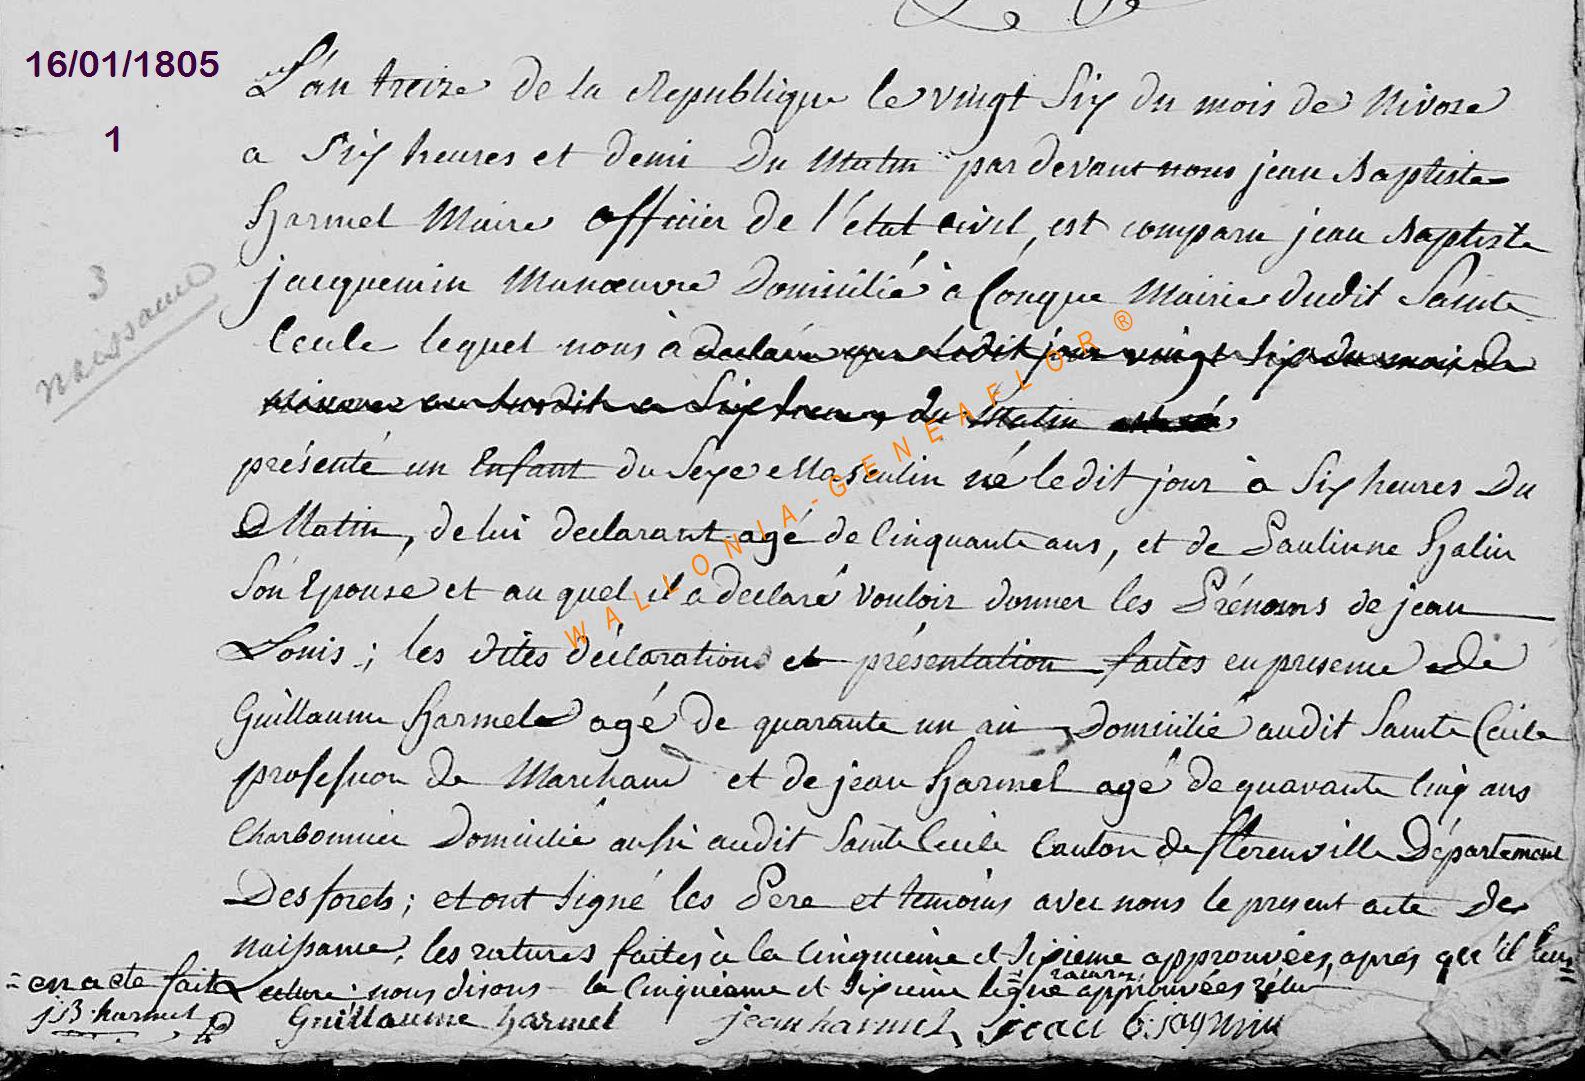 16/01/1805
1
3
naissance
L'an treize de la Republique le vingt Six du mois de Nivose
a Six heures et demi du Matin par devant nous jean Baptiste
Harmel Maire officier de l'état civil, est comparu jean Baptiste
jacquemin Manœuvre Domicilié à Conque Mairie dudit Sainte
Cecile lequel nous à declaré que ledit jour vingt Six du mois de
Nivose an Susdit a Six heures du Matin
présenté un Enfant du Sexe Masculin né ledit jour à Six heures Du
Matin, de lui declarant agé de Cinquante ans, et de Paulinne Halin
Son Epouse et au quel il a declaré vouloir donner les Prénoms de jean
Louis ; les dites déclarations et présentation faites en presence de
Guillaume Harmel agé de quarante un an Domicilié audit Sainte Cecile
profession de Marchand et de jean Harmel agé de quarante Cinq ans
Charbonnier Domicilié aussi audit Sainte Cecile Canton de florenville Département
Des forets ; et ont Signé les Pere et temoins avec nous le present acte de
naissance, les ratures faites à la Cinquieme et Sixieme approuvées, aprés qu'il leur
= en a eté fait Lecture ; nous disons la Cinquieme et Sixieme ligne raturée approuvées
jB. harmel Guillaume harmel jean harmel
WALLONIA-GENEAFLOR ®